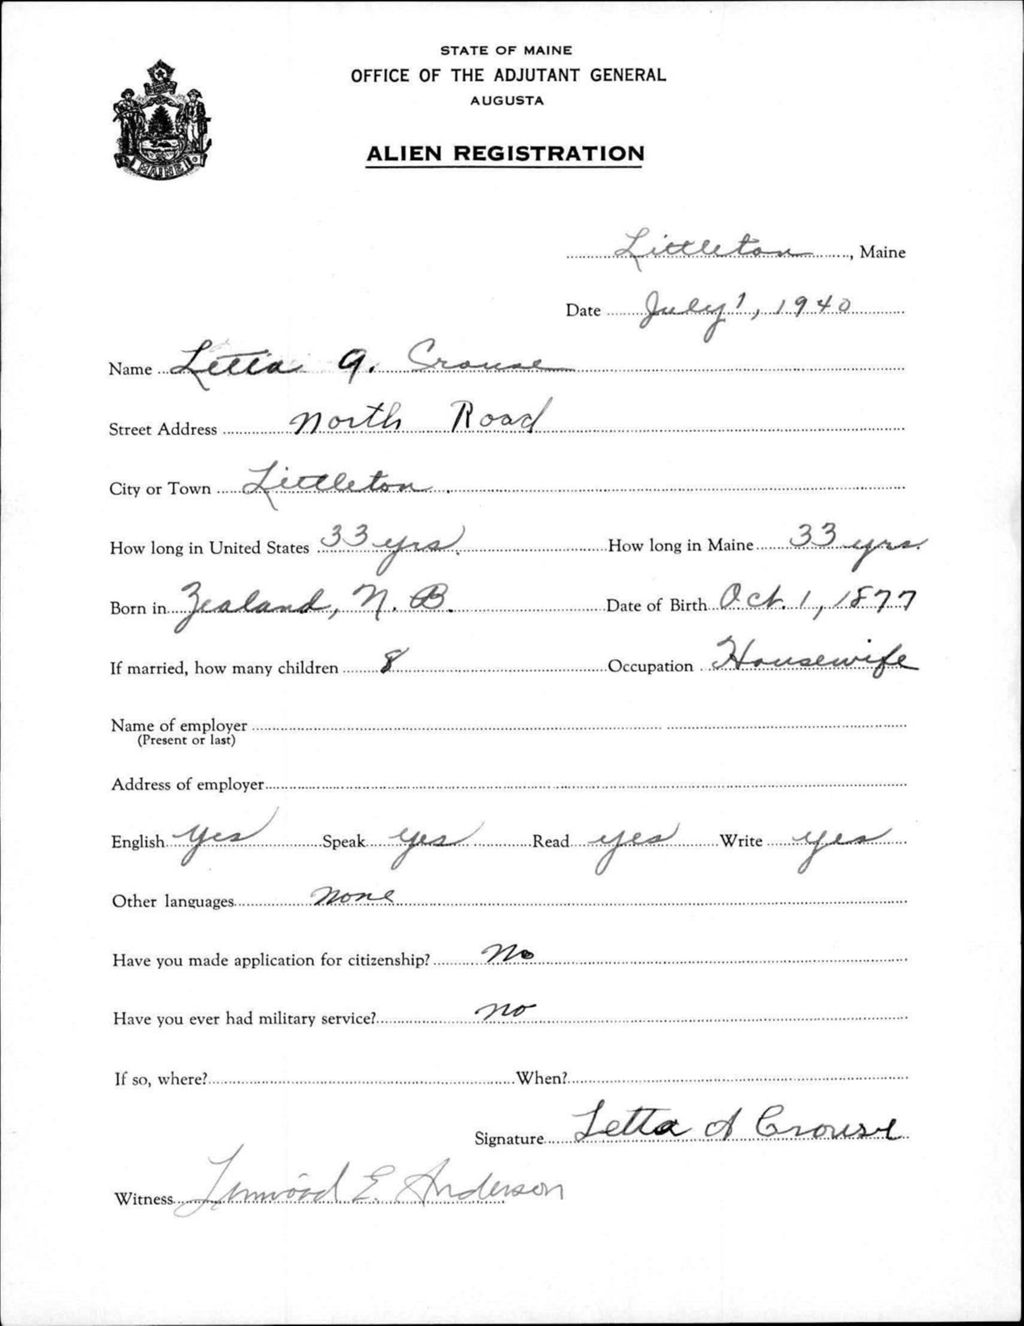 STATE OF MAINE
OFFICE OF THE ADJUTANT GENERAL
AUGUSTA
ALIEN REGISTRATION
MAINE
Littleton, Maine
Date July 1, 1940
Name Letta A. Crouse
Street Address North Road
City or Town Littleton.
How long in United States 33 yrs. How long in Maine 33 yrs.
Born in Zealand, N. B. Date of Birth Oct. 1, 1877
If married, how many children 8 Occupation Housewife
Name of employer
(Present or last)
Address of employer
English Yes Speak yes Read yes Write yes
Other languages none
Have you made application for citizenship? No
Have you ever had military service? no
If so, where? When?
Signature Letta A Crouse
Witness Linwood E. Anderson